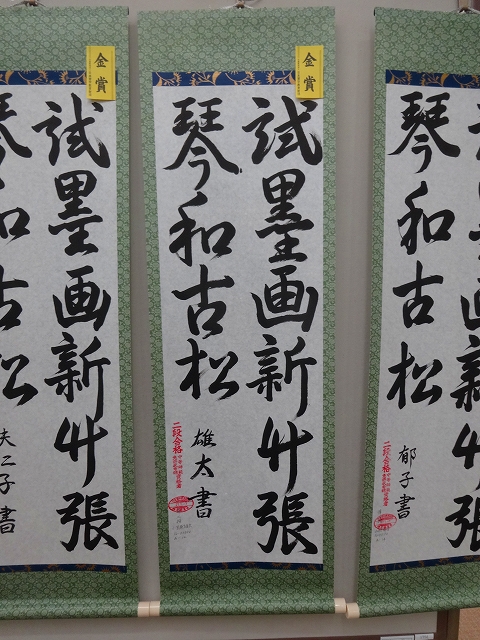 金賞
試墨画新竹張
琴和古松
雄太書
二段合格
金賞
試墨画新竹張
琴和古松
夫二子書
琴和古松
郁子書
二段合格